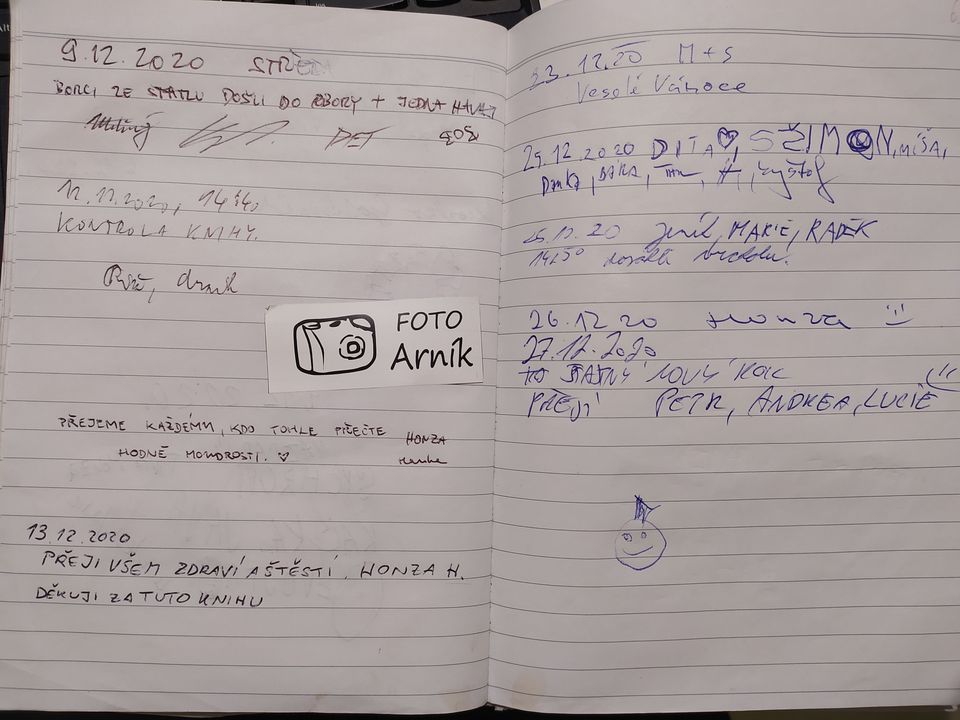 9.12.2020 STŘEDA
BORCI ZE STATLU DOŠLI DO OBORY + JEDNA
PET
12.12.2020, 14:40
KONTROLA KNIHY.
FOTO
Arník
PŘEJEME KAŽDÉMU, KDO TOHLE PŘEČTE HONZA
HODNĚ MOUDROSTI. ♡
13.12.2020
PŘEJI VŠEM ZDRAVÍ A ŠTĚSTÍ, HONZA H.
DĚKUJI ZA TUTO KNIHU
23.12.20 M+S
Veselé Vánoce
25.12.2020 DITA♡, MÍŠA,
Danka, BÁRA, Kryštof
25.12.20 Jeník, MARIE, RADEK
14:50
26.12.20 Honza
27.12.2020
ŠŤASTNÝ NOVÝ ROK
PŘEJÍ PETR, ANDREA, LUCIE